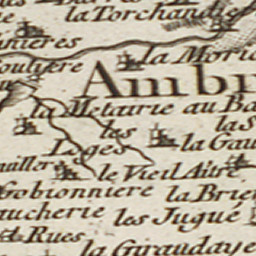 la Torchand
inieres
la Moric
oulyere
Ambr
la Metairie au Ba
les
la S
Loges
la Gau
aillere
le Vieil Aître
Gobionniere la Brie
aucherie les Jugue
Rues
la Giraudaye